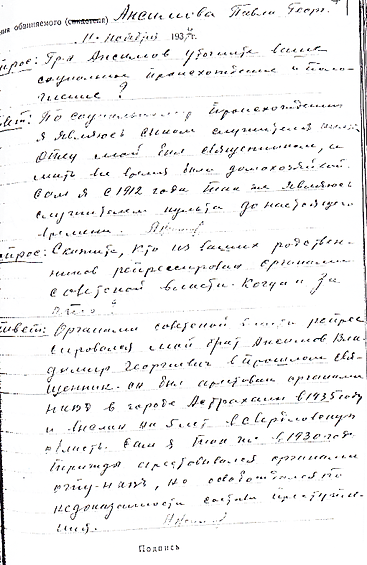 ния обвиняемого (свидетеля) Ансимова Павла Георг.
11 ноября 1937 г.
прос: Гр-н Ансимов уточните ваше
социальное происхождение и поло-
жение?
вет: По социальному происхождению
я являюсь сыном служителя культа
отец мой был священником, а
мать все время была домохозяйкой.
Сам я с 1912 года так же являюсь
служителем культа до настоящего
времени.
прос: Скажите, кто из ваших родствен-
ников репрессирован органами
советской власти. Когда и за
что?
вет: Органами советской власти репрес
сировался мой брат Ансимов Вла-
димир Георгиевич в прошлом свя-
щенник. он был арестован органами
НКВД в городе Астрахани в 1935 году
и выслан на 5 лет в Свердловскую
область. Сам я так же с 1930 года
трижды арестовывался органами
ОГПУ-НКВД, но освобождался по
недоказанности состава преступле-
ния.
Подпись